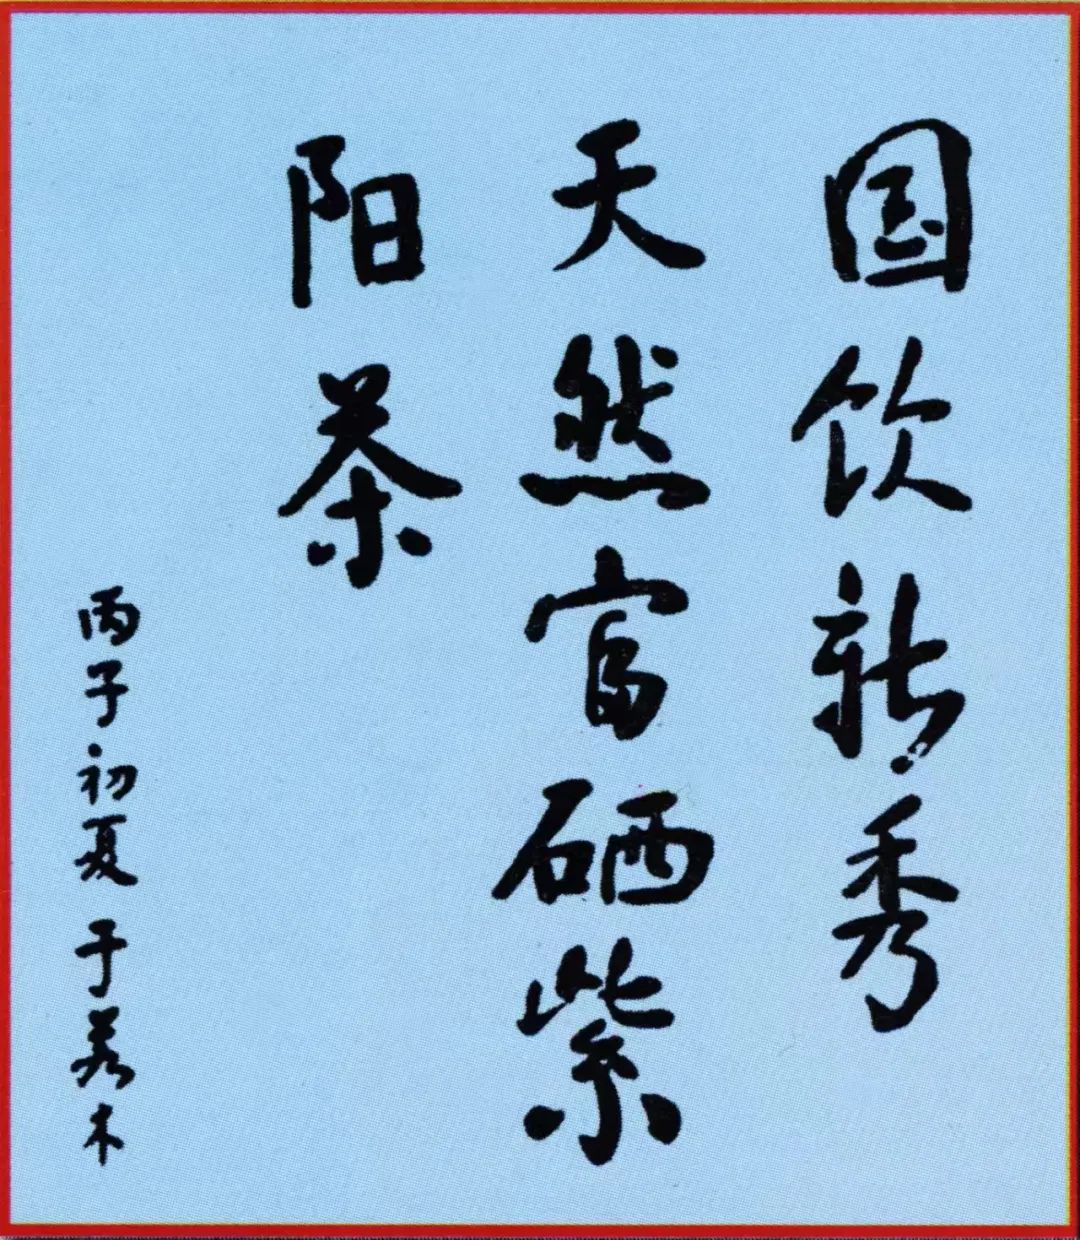 国饮新秀
天然富硒紫
阳茶
丙子初夏 于若木